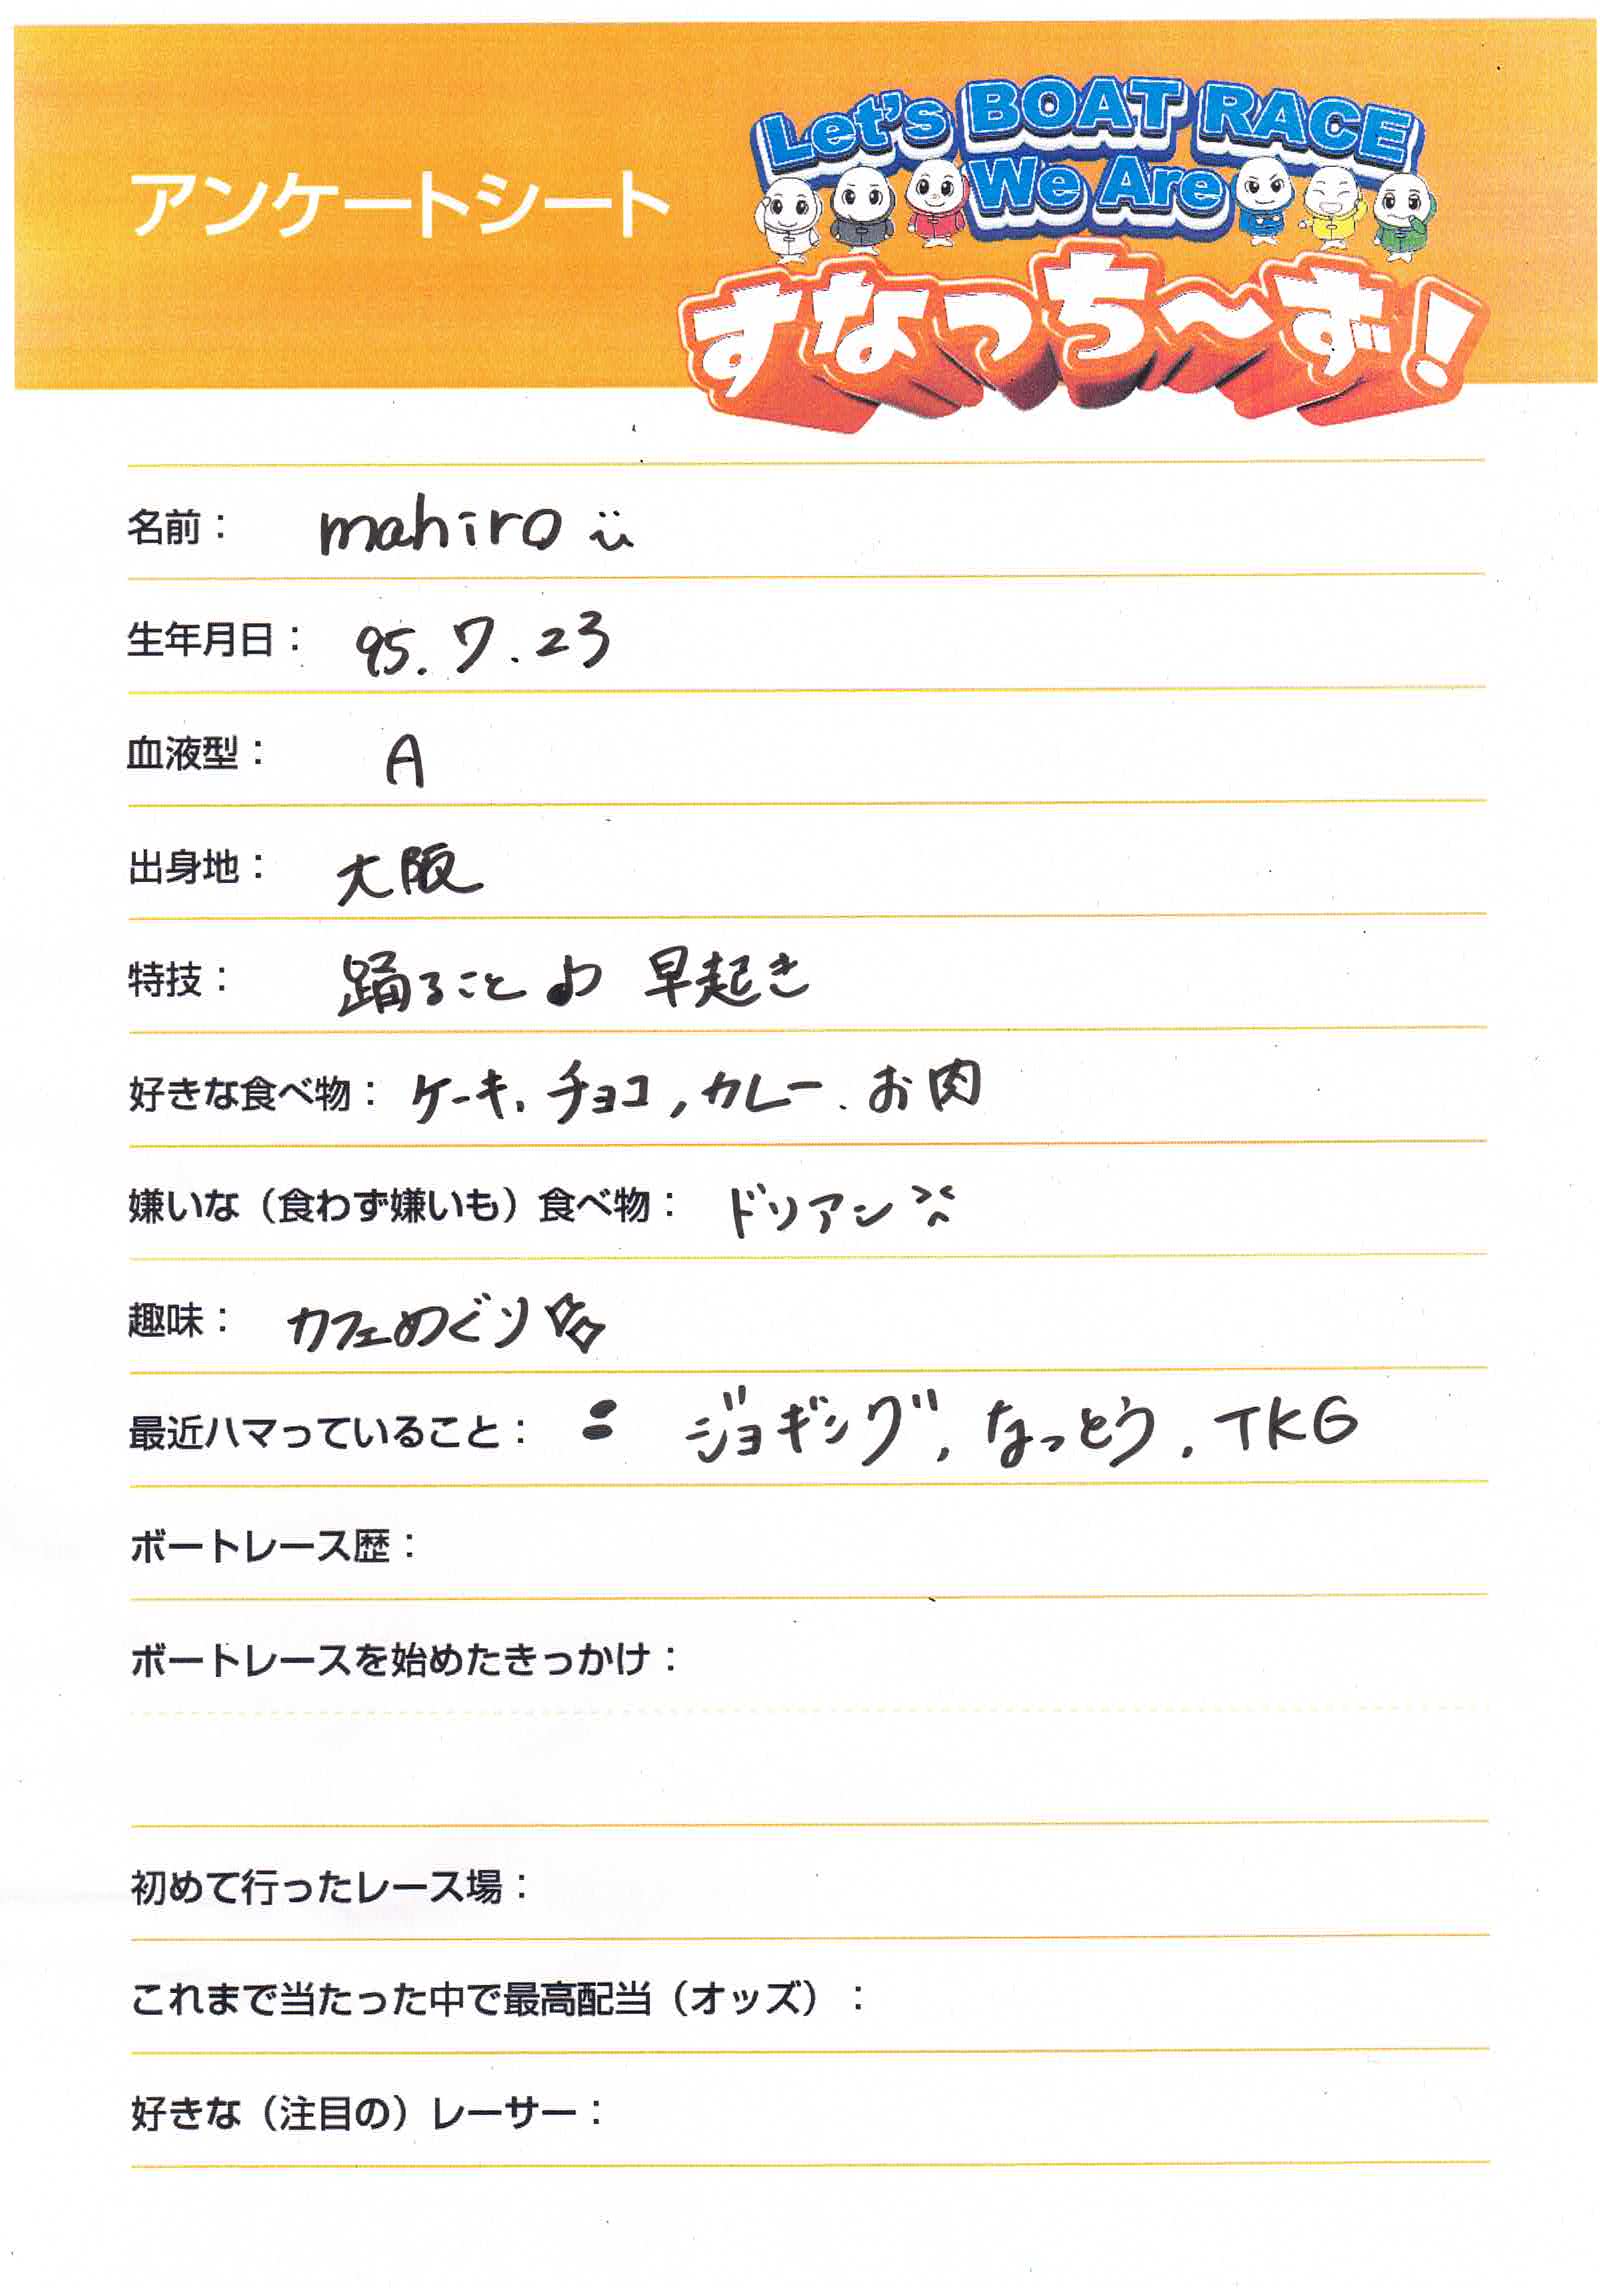 アンケートシート
Let's BOAT RACE
We Are
すなっち〜ず！
名前： mahiro
生年月日： 95.7.23
血液型： A
出身地： 大阪
特技： 踊ること♪ 早起き
好きな食べ物： ケーキ、チョコ，カレー、お肉
嫌いな（食わず嫌いも）食べ物： ドリアン
趣味： カフェめぐり
最近ハマっていること： ジョギング，なっとう，TKG
ボートレース歴：
ボートレースを始めたきっかけ：
初めて行ったレース場：
これまで当たった中で最高配当（オッズ）：
好きな（注目の）レーサー：